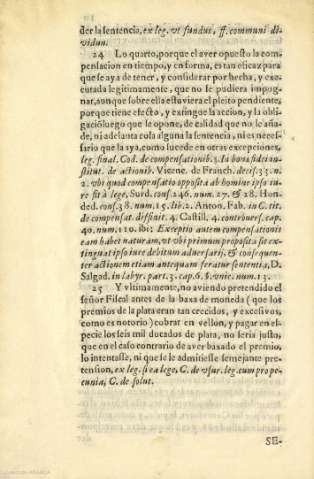 der la sentencia, ex leg. vt fundus, ff. communi di-
vidun.
24 Lo quarto, porque el aver opuesto la com-
pensacion en tiempo, y en forma, es tan eficaz para
que se aya de tener, y considerar por hecha, y exe-
cutada legitimamente, que no se pudiera impug-
nar, aunque sobre ella estuviera el pleito pendiente,
porque tiene efecto, y extingue la accion, y la obli-
gacion luego que se opone, de calidad que no se aña-
de, ni adelanta cosa alguna la sentencia, ni es neces-
sario que la aya, como sucede en otras excepciones,
leg. final. Cod. de compensationib. §. In bonæ fidei in-
stitut. de actionib. Vicenc. de Franch. decis. 35. n.
2. vbi quod compensatio opposita ab homine ipso iu-
re fit à lege, Surd. cons. 246. num. 27. & 28. Hon-
ded. cons. 38. num. 15. lib. 2. Anton. Fab. in C. tit.
de compensat. diffinit. 4. Castill. 4. controvers. cap.
40. num. 110. ibi: Exceptio autem compensationis
eam habet naturam, vt vbi primum proposita sit ex-
tinguat ipso iure debitum adversarij, & consequen-
ter actionem etiam antequam feratur sententia, D.
Salgad. in labyr. part. 3. cap. 6. §. vnic. num. 13.
25 Y vltimamente, no aviendo pretendido el
señor Fiscal antes de la baxa de moneda (que los
premios de la plata eran tan crecidos, y excesivos,
como es notorio) cobrar en vellon, y pagar en es-
pecie los seis mil ducados de plata, no seria justo,
que en el caso contrario de aver baxado el premio,
lo intentasse, ni que se le admitiesse semejante pre-
tension, ex leg. si ea lege, C. de vsur. leg. cum pro pe-
cunia, C. de solut.
SE-